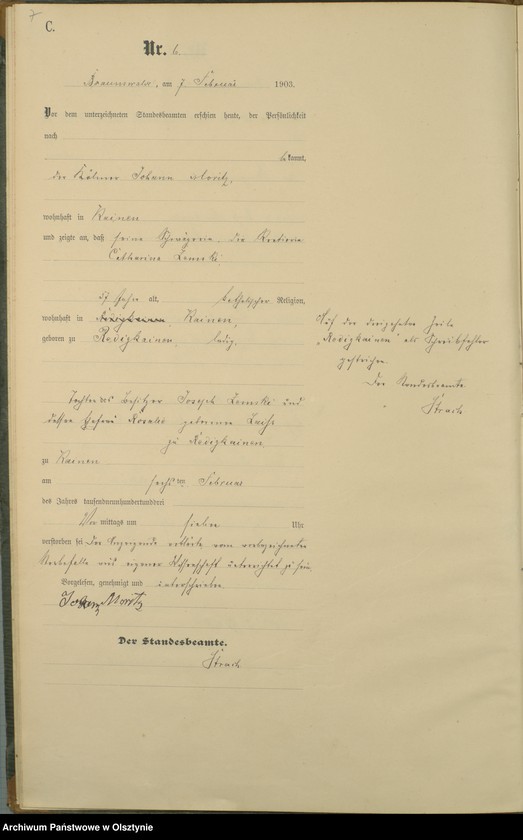 C.
Nr. 6
am 7 Februar 1903.
Vor dem unterzeichneten Standesbeamten erschien heute, der Persönlichkeit
nach
bekannt,
der Kölmer Johann Moritz,
wohnhaft in Rainen
und zeigte an, daß seine Schwägerin, die
Catharina
57 Jahre alt, katholischer Religion,
wohnhaft in Rodigkainen, Rainen,
geboren zu Rodigkainen, ledig,
Tochter des Besitzer Joseph und
dessen Ehefrau geborene
zu Rodigkainen
zu Rainen
am sechsten Februar
des Jahres tausendneunhundertunddrei
Vor mittags um sieben Uhr
verstorben sei Der Anzeigende erklärte vom vorbezeichneten
Sterbefalle aus eigener Wissenschaft unterrichtet zu sein.
Vorgelesen, genehmigt und unterschrieben
Johann Moritz
Der Standesbeamte.
Auf der dreizehnten Zeile
„Rodigkainen“ als Schreibfehler
gestrichen
Der Standesbeamte
Archiwum Państwowe w Olsztynie